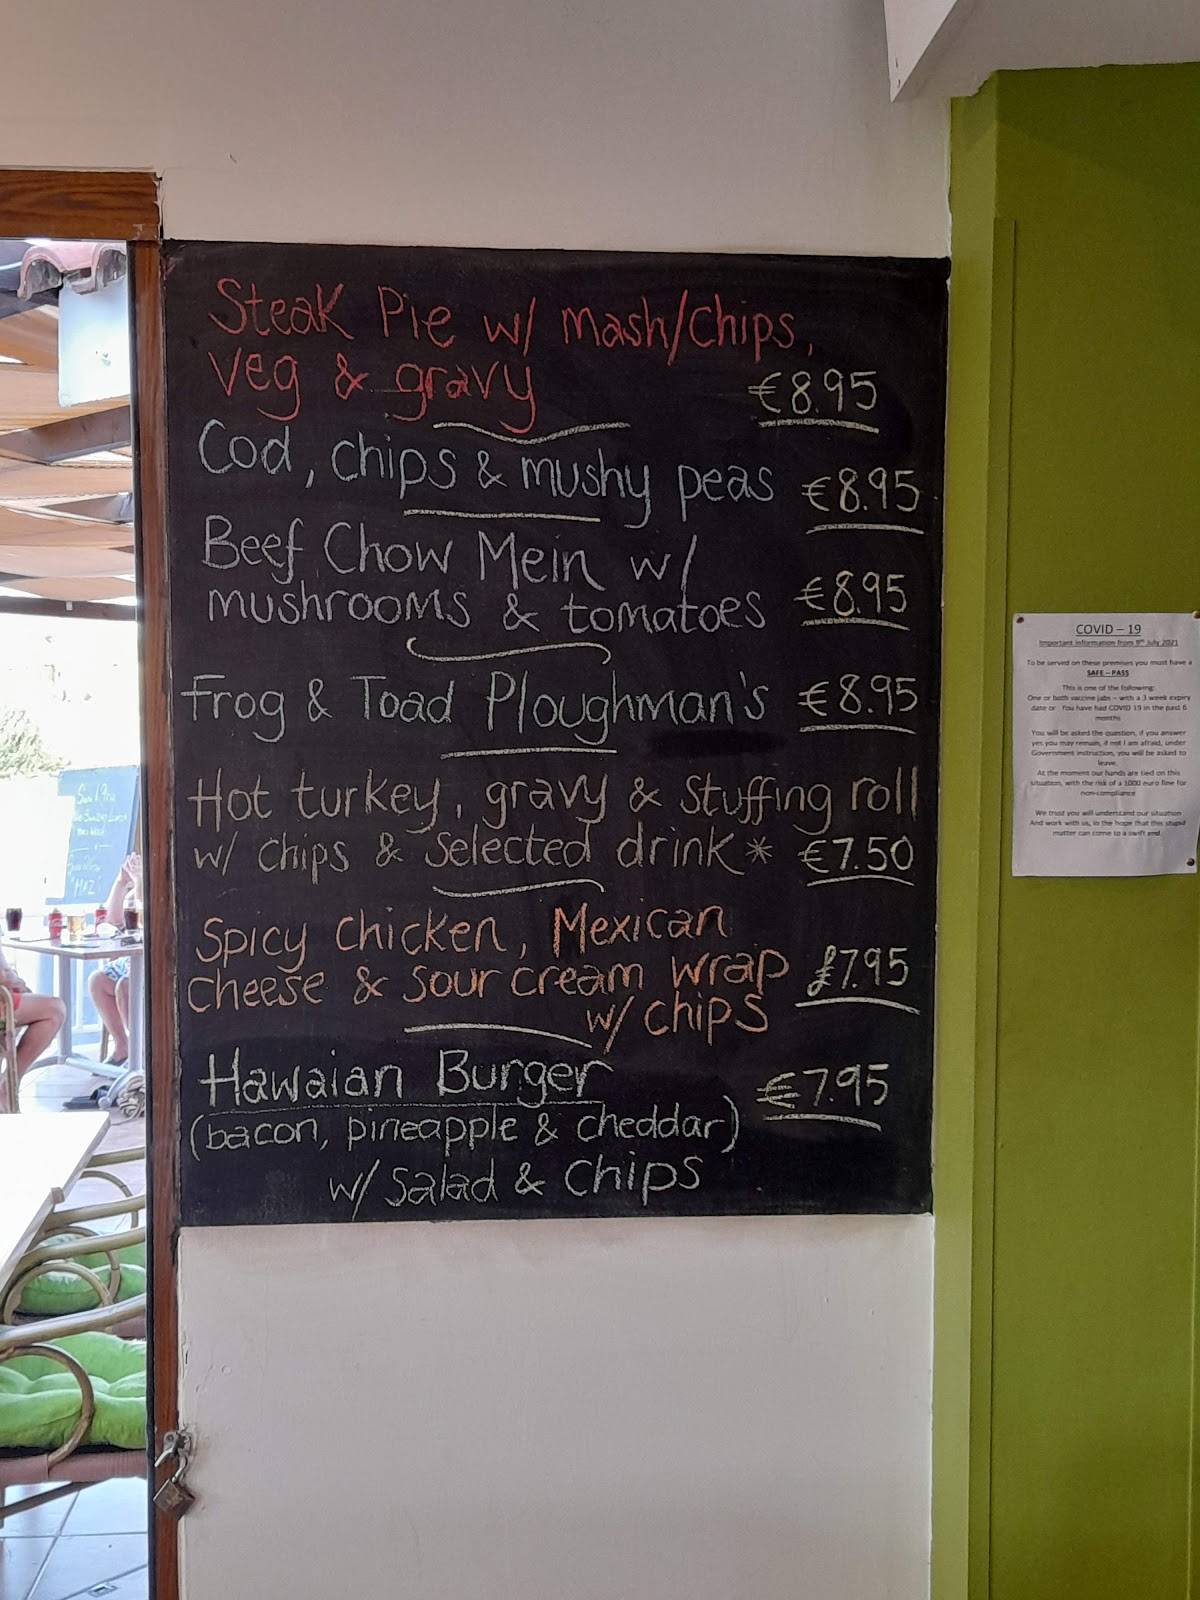 Steak Pie w/ mash/chips,
veg & gravy €8.95
Cod, chips & mushy peas €8.95
Beef Chow Mein w/
mushrooms & tomatoes €8.95
Frog & Toad Ploughman's €8.95
Hot turkey, gravy & stuffing roll
w/ chips & selected drink* €7.50
Spicy chicken, Mexican
cheese & sour cream wrap £7.95
w/ chips
Hawaian Burger €7.95
(bacon, pineapple & cheddar)
w/ salad & chips
COVID – 19
Important information from 9th July 2021
To be served on these premises you must have a
SAFE – PASS
This is one of the following:
One or both vaccine jabs – with a 3 week expiry
date or You have had COVID 19 in the past 6
months
You will be asked the question, if you answer
yes you may remain, if not I am afraid, under
Government instruction, you will be asked to
leave.
At the moment our hands are tied on this
situation, with the risk of a 1000 euro fine for
non-compliance
We trust you will understand our situation
And work with us, in the hope that this stupid
matter can come to a swift end.